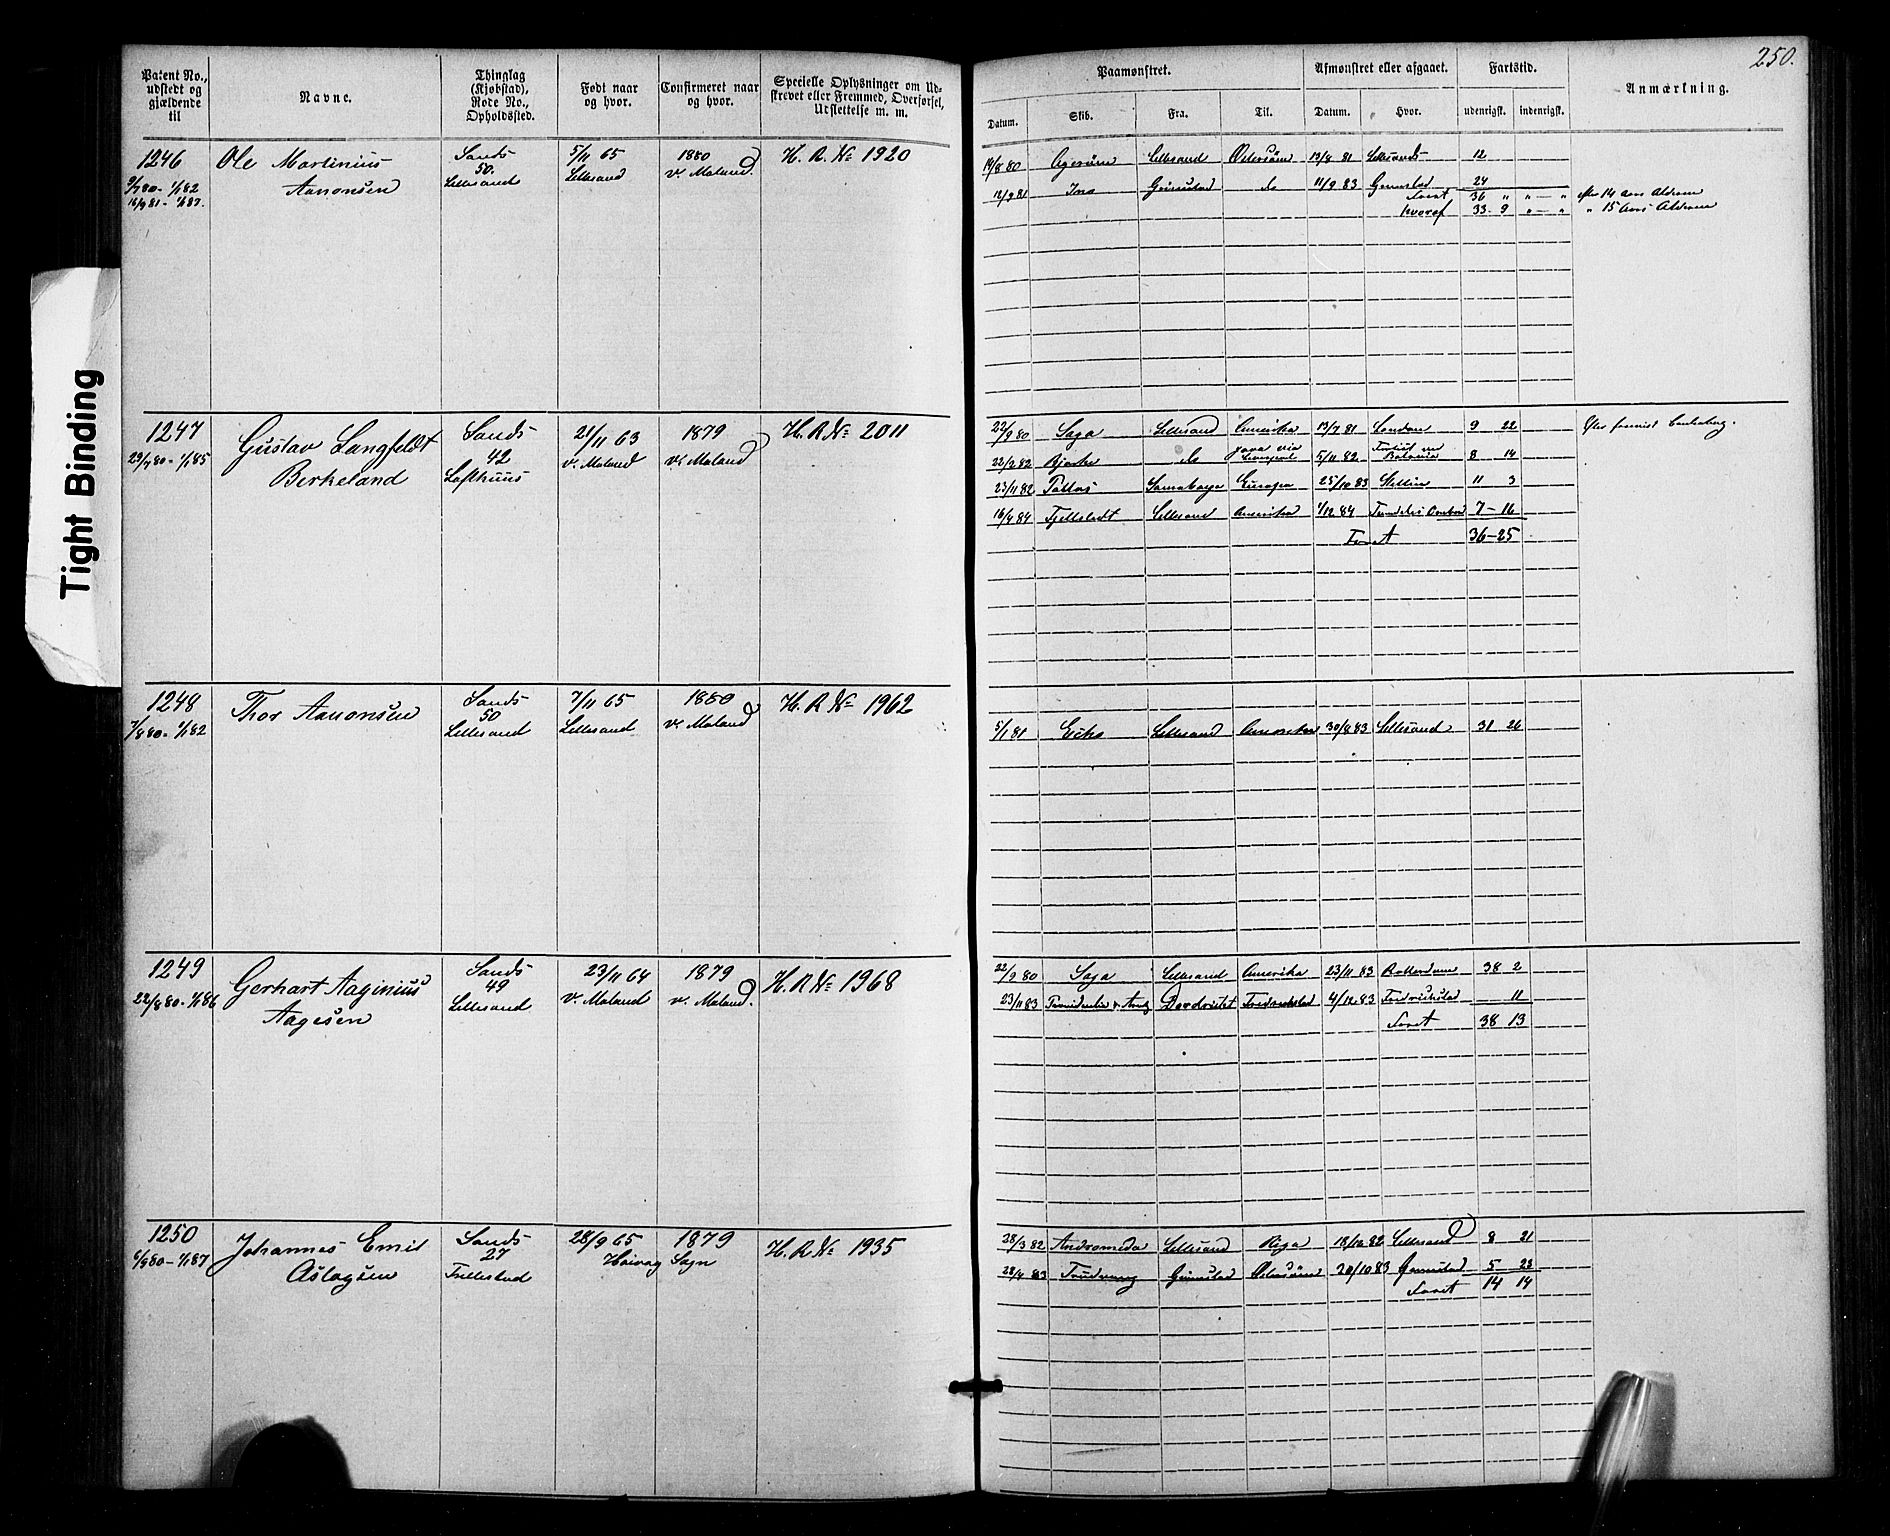 Tight Binding
250.
Patent No., udstedt og gjældende til
Navne.
Thinglag (Kjøbstad), Rode No., Opholdssted.
Født naar og hvor.
Confirmeret naar og hvor.
Specielle Oplysninger om Udskrevet eller Fremmed, Overførsel, Udslettelse m. m.
Paamønstret.
Afmønstret eller afgaaet.
Fartstid.
Anmærkning.
Datum. Skib. Fra. Til. Datum. Hvor. udenrigsk. indenrigsk.
1246 Ole Martinius Sands 5/11 65 1880 H. R. No 1920
9/7 80 - 1/1 82 Aanonsen 50. Lillesand V. Moland.
16/9 81 - 1/1 87. Lillesand
14/8 80 Lillesand Østersøen 13/8 81 Lillesand 12
12/9 81 Ino Grimstad do 11/9 83 Grimstad 24
Faret 36 " " — " efter 14 Aars Alderen
hvoraf 33. 9 " — " " 15 Aars Alderen
1247 Gustav Langfeldt Sands 21/11 63 1879 H. R. No 2011
23/7 80 - 1/1 85 Berkeland 42 V. Moland V. Moland
Lofthuus
22/9 80 Saga Lillesand Amerika 13/7 81 London 9 22
22/2 82 Bjarke do Java via Liverpool 5/11 82 Batavia 8 14
23/11 82 Pallas Europa 25/10 83 Stettin 11 3
16/4 84 Fjeldstedt Lillesand Amerika 1/12 84 7 - 16
Faret 36 - 25
1248 Thor Aanonsen Sands 7/11 65 1880 H. R. No 1962
7/8 80 - 1/1 82 50 Lillesand V. Moland
Lillesand
5/1 81 Echo Lillesand Amerika 30/8 83 Lillesand 31 26
1249 Gerhart Aaginius Sands 23/11 64 1879 H. R. No 1968
22/8 80 - 1/1 86 Aagesen 49 V. Moland V. Moland.
Lillesand
22/9 80 Saga Lillesand Amerika 23/11 83 Rotterdam 38 2
23/11 83 Dordrecht Fredrikstad 4/12 83 Fredrikstad 11
Faret 38 13
1250 Johannes Emil Sands 28/9 65 1879 H. R. No 1935
6/9 80 - 1/1 87 Aslagsen 27 Høivaag Sogn
Trillestad
28/3 82 Andromeda Lillesand Riga 18/12 82 Lillesand 8 21
28/4 83 Grimstad Østersøen 20/10 83 Grimstad 5 23
Faret 14 14